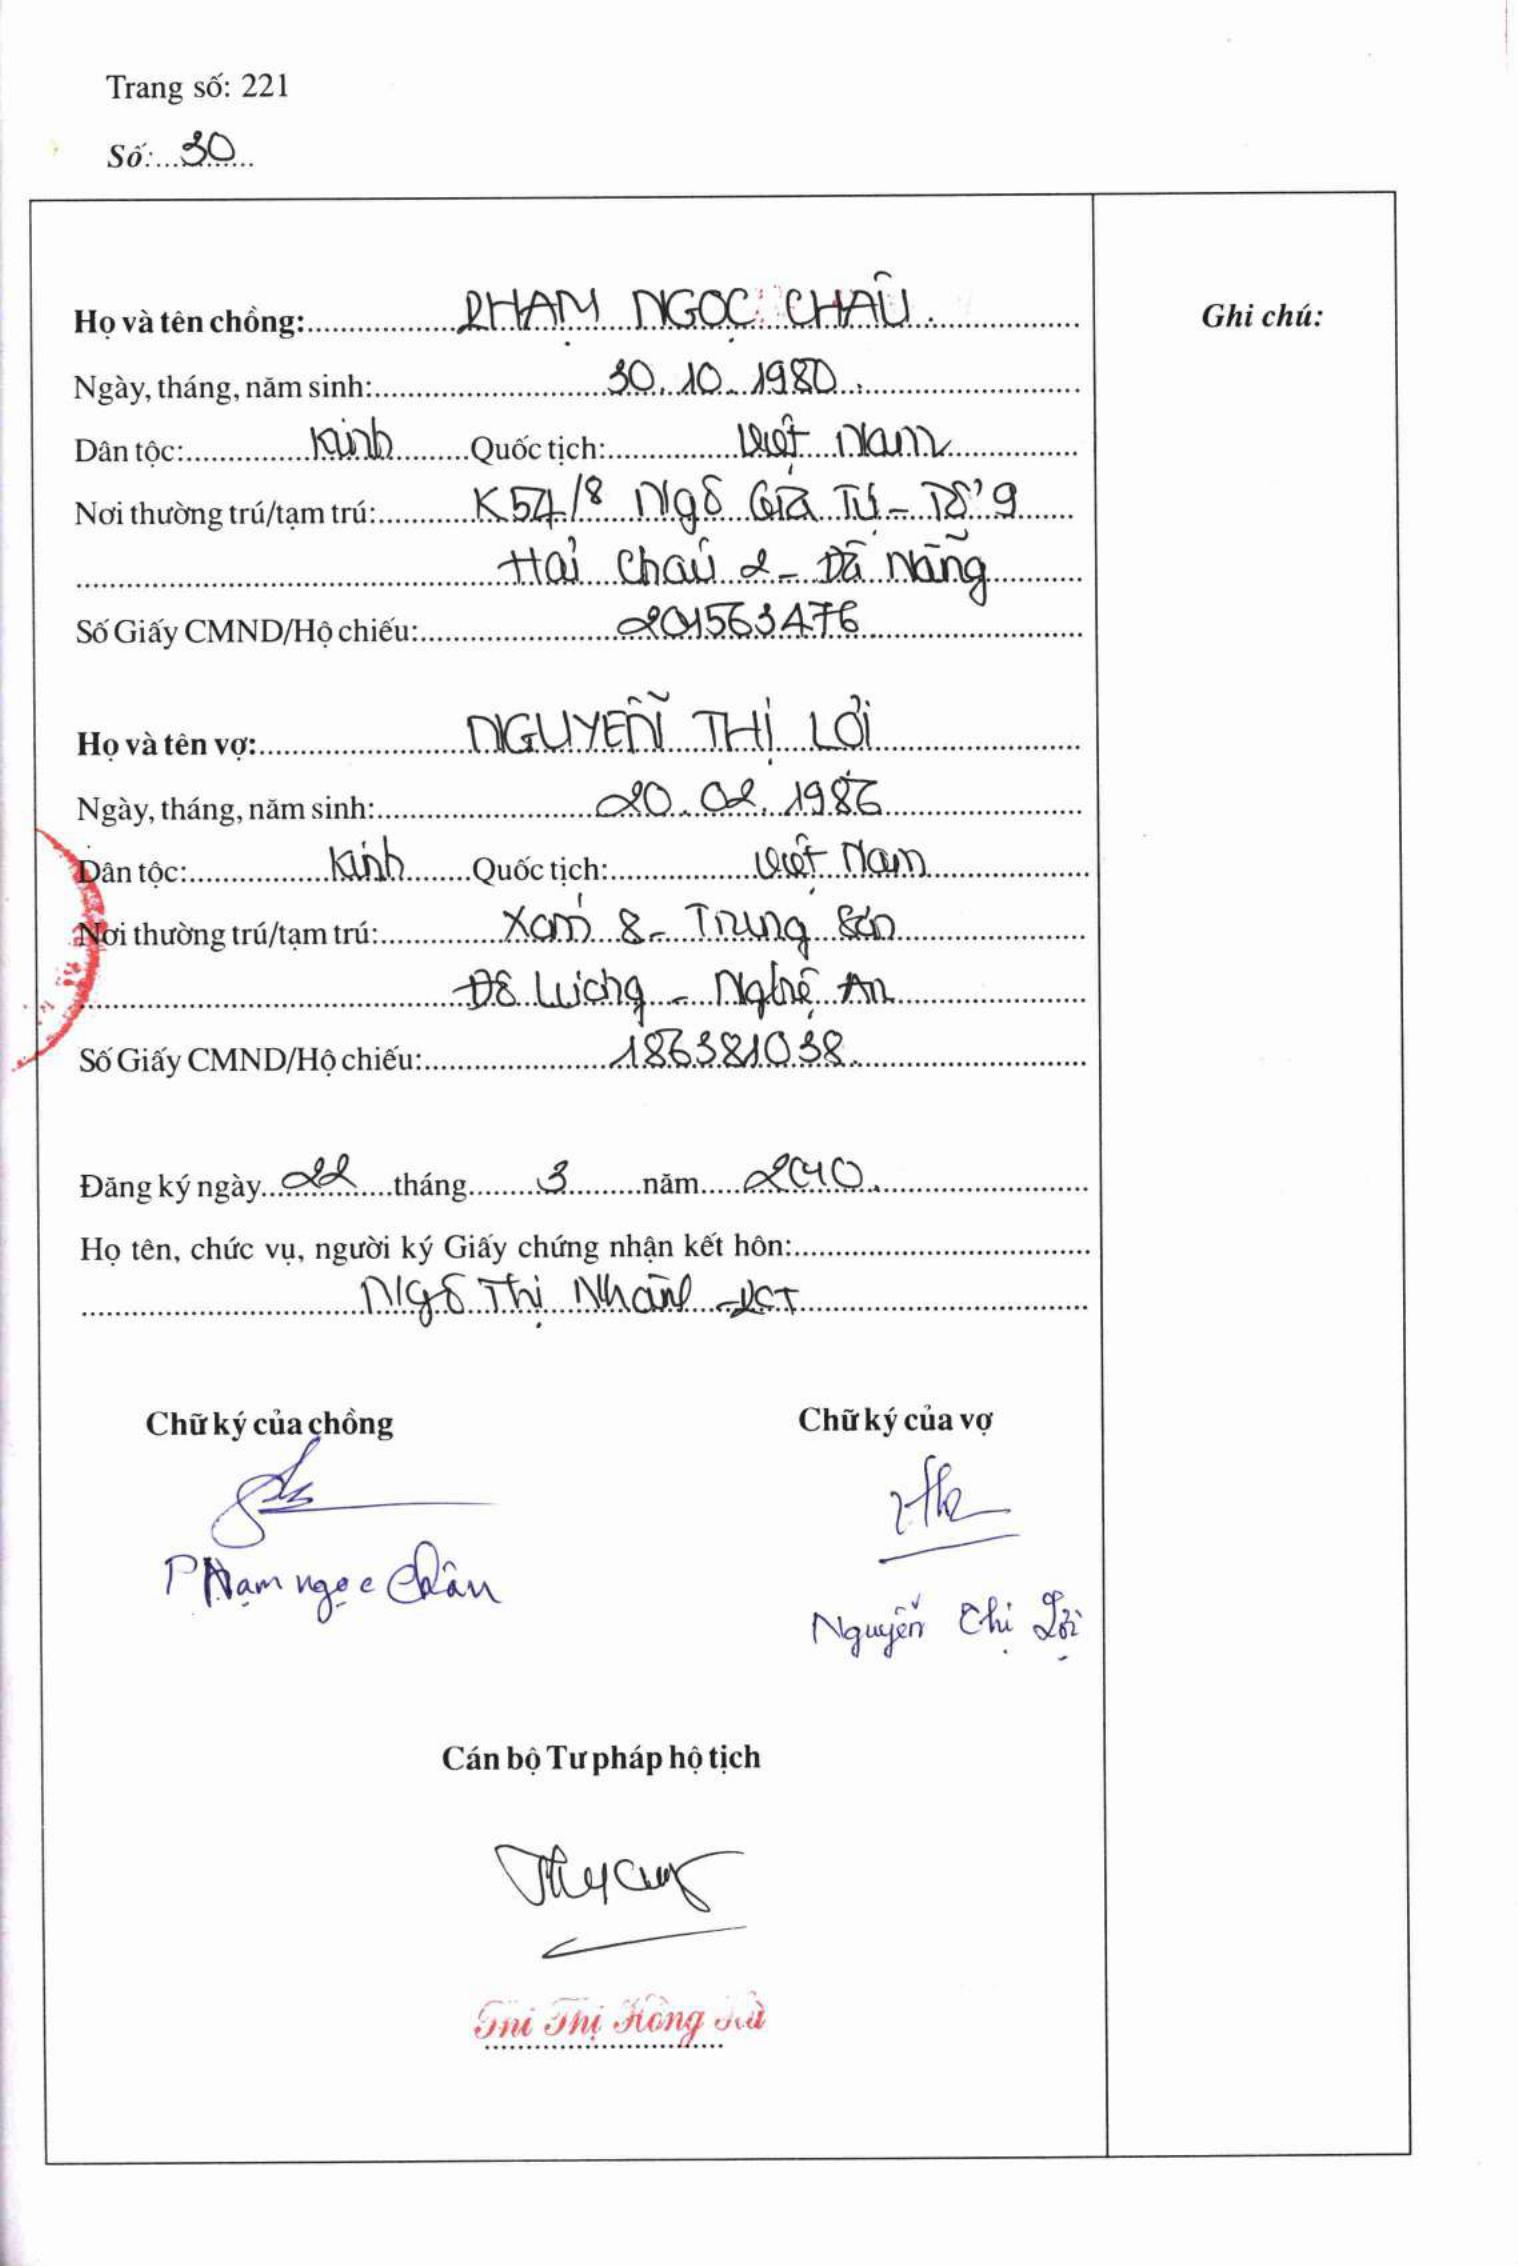 Trang số: 221
Số: 30
Họ và tên chồng: PHẠM NGỌC CHÂU
Ghi chú:
Ngày, tháng, năm sinh: 30.10.1980
Dân tộc: Kinh Quốc tịch: Việt Nam
Nơi thường trú/tạm trú: K54/8 Ngô Gia Tự - Tổ 9
Hải Châu 2 - Đà Nẵng
Số Giấy CMND/Hộ chiếu: 201563476
Họ và tên vợ: NGUYỄN THỊ LỢI
Ngày, tháng, năm sinh: 20.02.1986
Dân tộc: Kinh Quốc tịch: Việt Nam
Nơi thường trú/tạm trú: Xóm 8 - Trung Sơn
Đô Lương - Nghệ An
Số Giấy CMND/Hộ chiếu: 186381038
Đăng ký ngày 22 tháng 3 năm 2010
Họ tên, chức vụ, người ký Giấy chứng nhận kết hôn:
Ngô Thị Nhàn - PCT
Chữ ký của chồng Chữ ký của vợ
Phạm ngọc Châu
Nguyễn Thị Lợi
Cán bộ Tư pháp hộ tịch
Thị Hồng